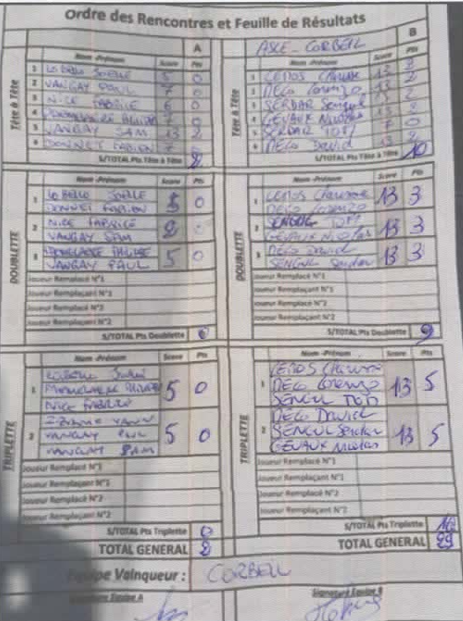 Ordre des Rencontres et Feuille de Résultats
A
B
ASLE - CORBEIL
Tête à Tête
Nom -Prénom Score Pts
1 LO BELLO JOELLE 5 0
2 VANGAY PAUL 7 0
3 NICE FABRICE 6 0
4 7 0
5 VANGAY SAM 13 2
6 DONNET FABIEN 7 0
S/TOTAL Pts Tête à Tête 2
Tête à Tête
Nom -Prénom Score Pts
1 LEDOS Christine 13 2
2 DECO Lorenzo 13 2
3 SERDAR Sengul 13 2
4 GEVAUX Nicolas 13 2
5 7 0
6 DECO David 13 2
S/TOTAL Pts Tête à Tête 10
DOUBLETTE
Nom -Prénom Score Pts
1 LO BELLO JOELLE 5 0
DONNET FABIEN
2 NICE FABRICE 8 0
VANGAY SAM
3 5 0
VANGAY PAUL
Joueur Remplacé N°1
Joueur Remplaçant N°1
S/TOTAL Pts Doublette 0
DOUBLETTE
Nom -Prénom Score Pts
1 LEDOS Christine 13 3
DECO Lorenzo
2 SENGUL 13 3
GEVAUX Nicolas
3 DECO David 13 3
SENGUL Serdar
Joueur Remplacé N°1
Joueur Remplaçant N°1
S/TOTAL Pts Doublette 9
TRIPLETTE
Nom -Prénom Score Pts
1 LOBELLO Joelle 5 0
NICE FABRICE
2 YANN 5 0
VANGAY PAUL
VANGAY SAM
Joueur Remplacé N°1
Joueur Remplaçant N°1
Joueur Remplacé N°2
Joueur Remplaçant N°2
S/TOTAL Pts Triplette 0
TOTAL GENERAL 2
TRIPLETTE
Nom -Prénom Score Pts
1 LEDOS Christine 13 5
DECO Lorenzo
SENGUL
2 DECO David 13 5
SENGUL Serdar
GEVAUX Nicolas
Joueur Remplacé N°1
Joueur Remplaçant N°1
Joueur Remplacé N°2
Joueur Remplaçant N°2
S/TOTAL Pts Triplette 10
TOTAL GENERAL 29
Equipe Vainqueur : CORBEIL
Signature Equipe A
Signature Equipe B